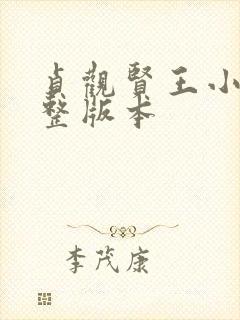 貞觀賢王小
整版本
李茂康